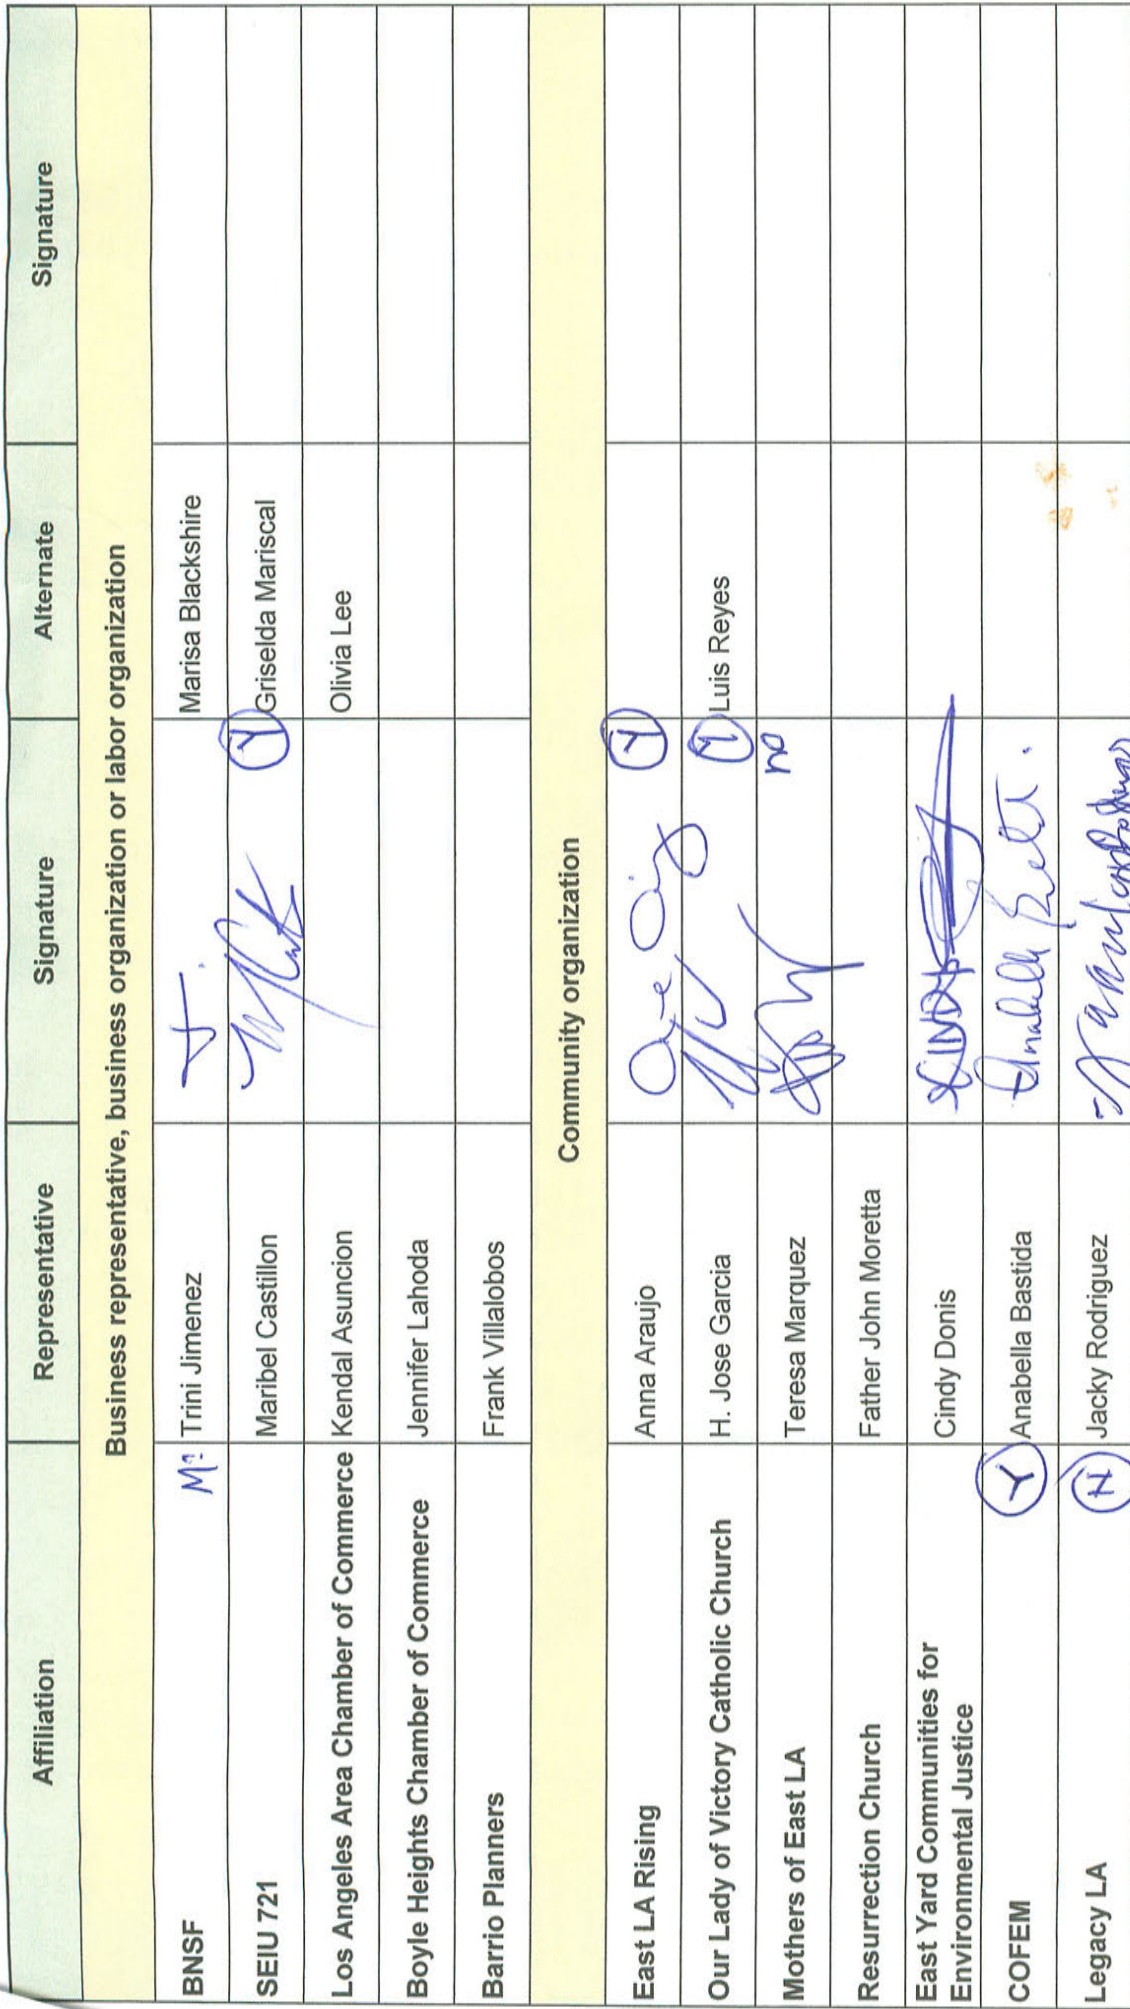 Affiliation Representative Signature Alternate Signature
Business representative, business organization or labor organization
BNSF Trini Jimenez Marisa Blackshire
SEIU 721 Maribel Castillon Y Griselda Mariscal
Los Angeles Area Chamber of Commerce Kendal Asuncion Olivia Lee
Boyle Heights Chamber of Commerce Jennifer Lahoda
Barrio Planners Frank Villalobos
Community organization
East LA Rising Anna Araujo Y
Our Lady of Victory Catholic Church H. Jose Garcia Luis Reyes
Mothers of East LA Teresa Marquez no
Resurrection Church Father John Moretta
East Yard Communities for
Environmental Justice Cindy Donis
COFEM Y Anabella Bastida
Legacy LA N Jacky Rodriguez